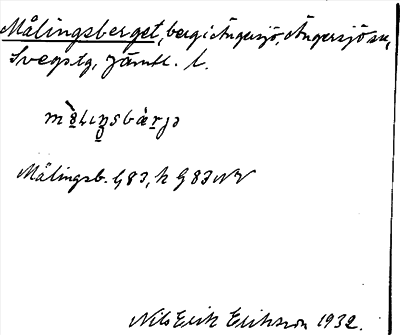 Målingsberget, berg i Ängersjö, Ängersjö sn,
Svegs tg, Jämtl. l.
Målingsb. G 83, k G 83 NV
Nils Erik Eriksson 1932.